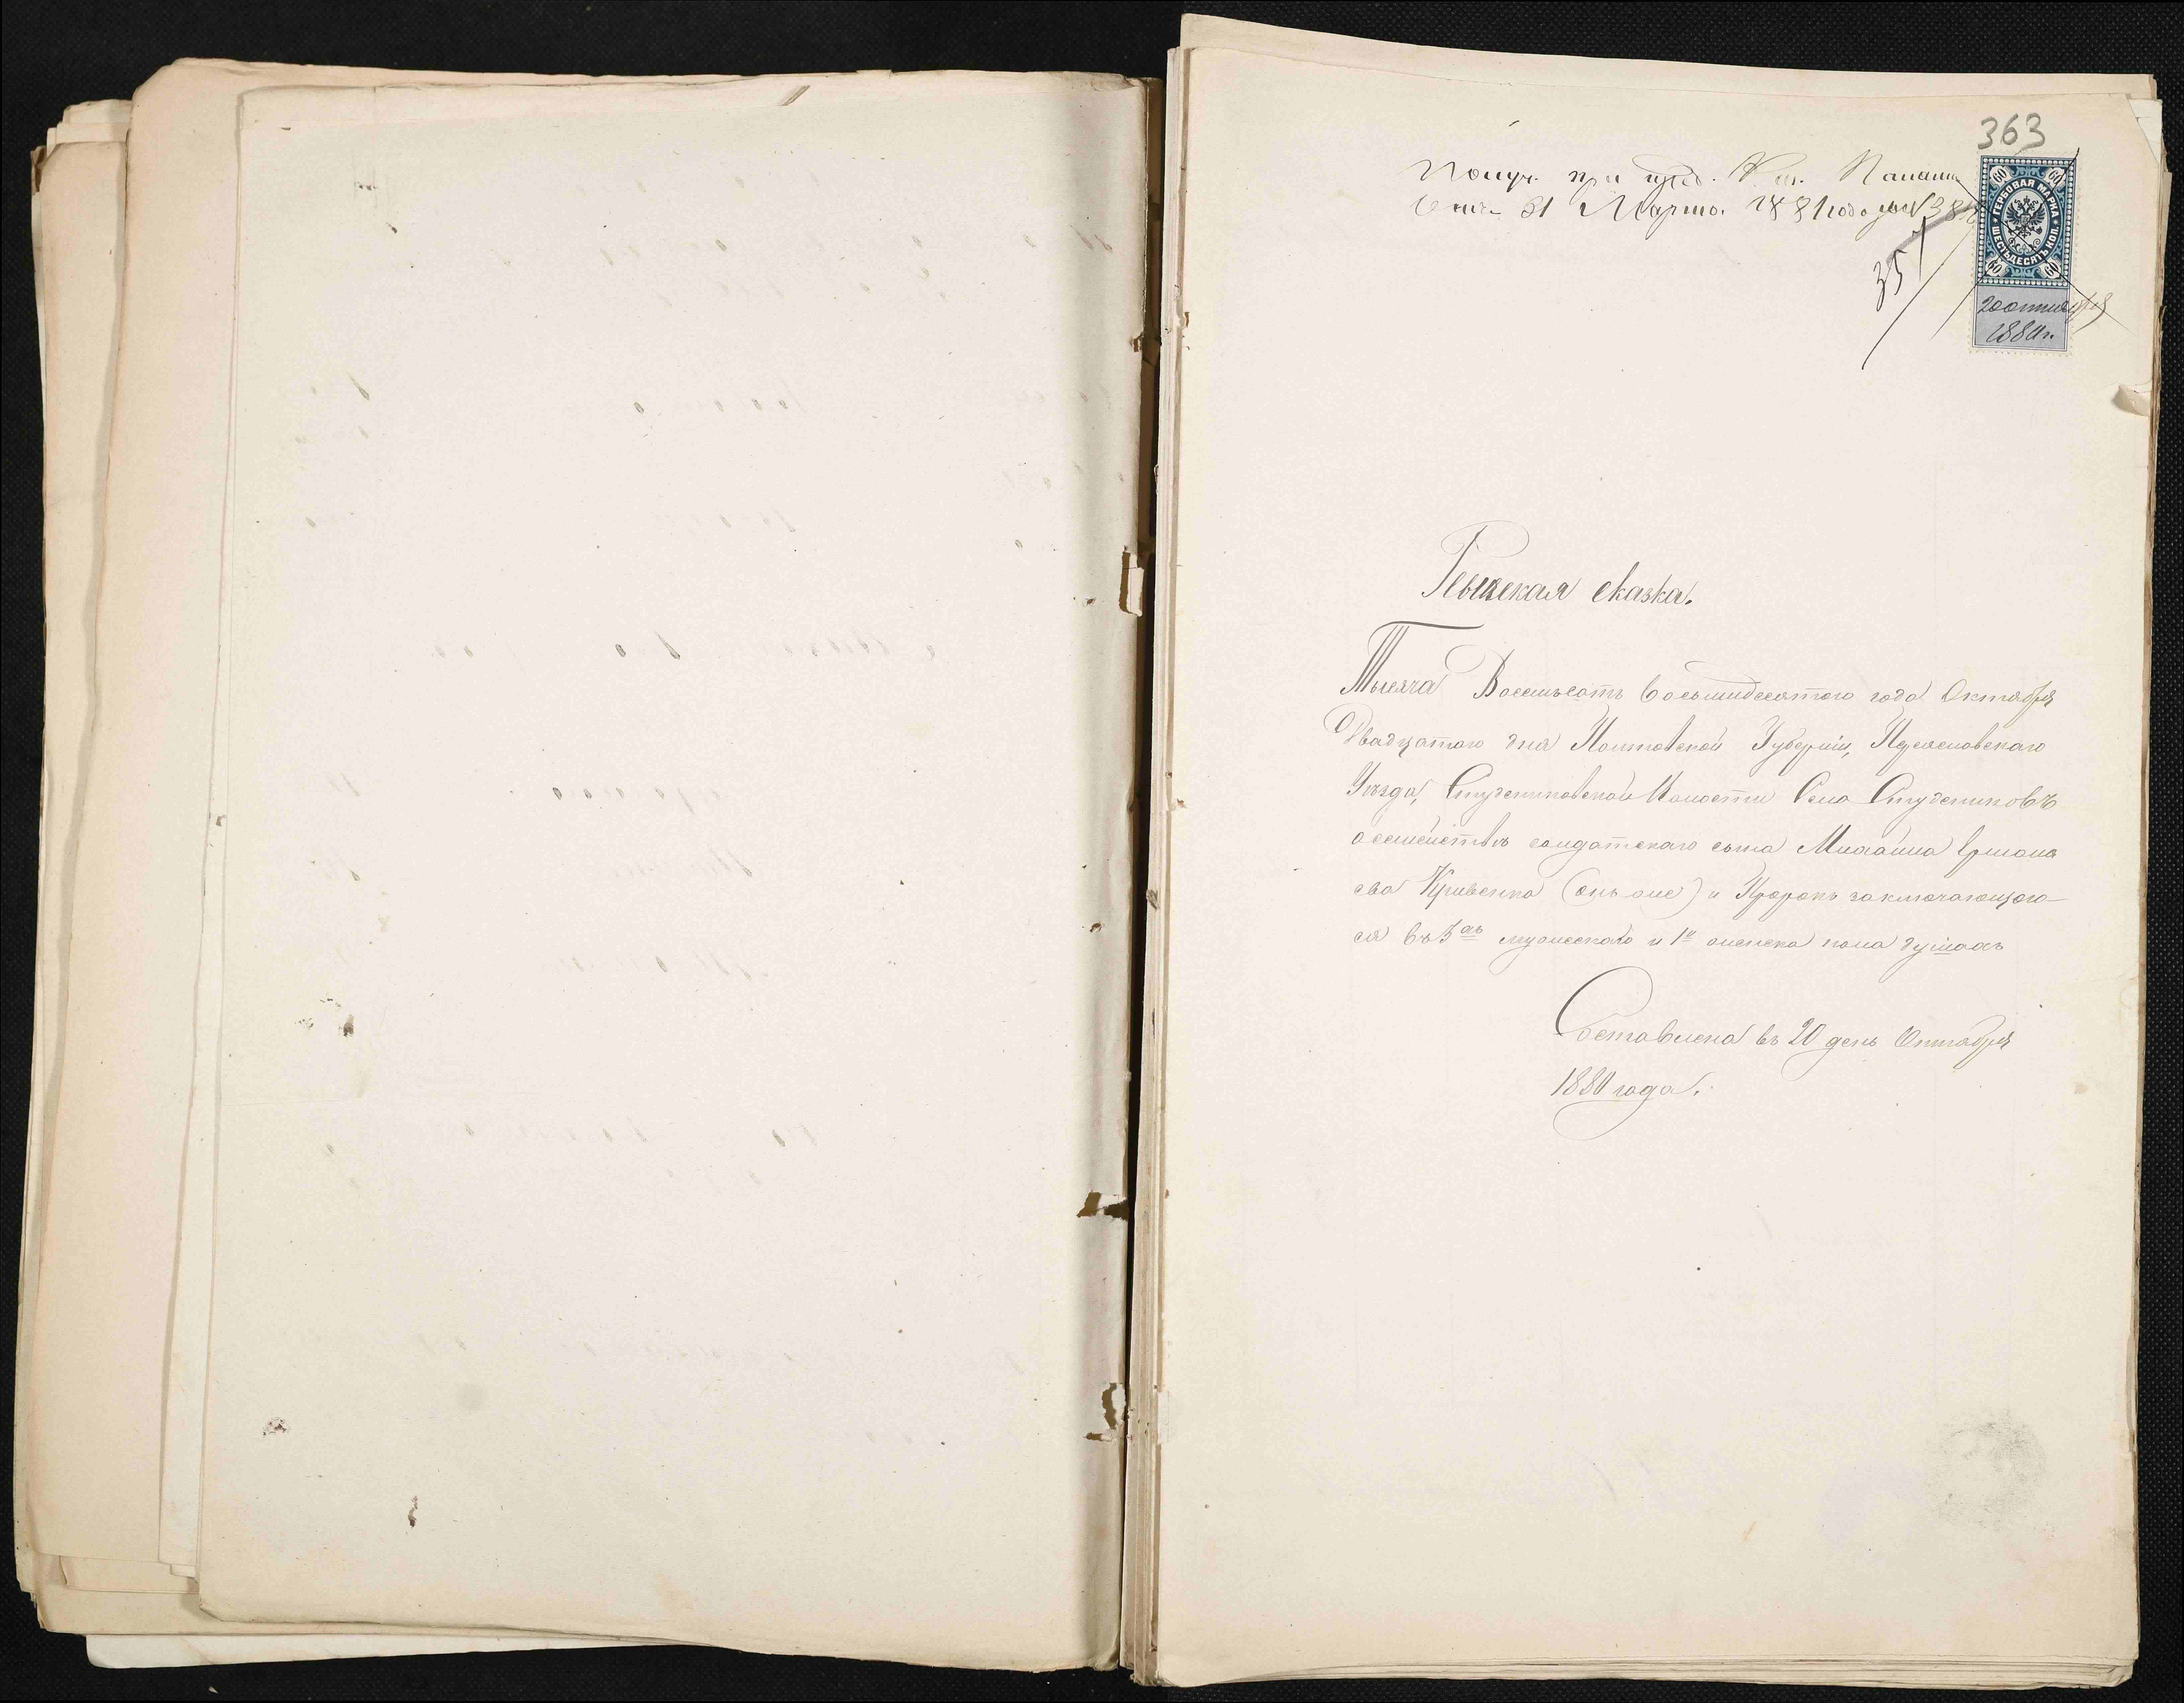 363
Получ. при пред. Каз. Палаты
отъ 31 Марта 1881 года за №
357
60 60
ГЕРБОВАЯ МАРКА
ШЕСТЬДЕСЯТЪ КОП.
60 60
20 октября
1880 г.
Ревизская сказка.
Тысяча Восемьсотъ восьмидесятого года Октября
Двадцатого дня Полтавской Губерніи, Переяславскаго
Уѣзда, Студениковской Волости Села Студениковъ
о семействѣ солдатскаго сына Михаила
ева Кривенка (онъ же) и заключающого-
ся въ 3ахъ мужескаго и 1й женска пола душахъ
Составлена въ 20 день Октября
1880 года.